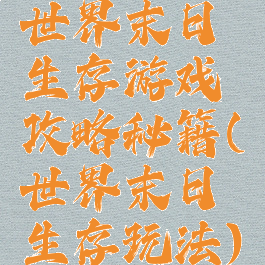 世界末日
生存游戏
攻略秘籍(
世界末日
生存玩法)